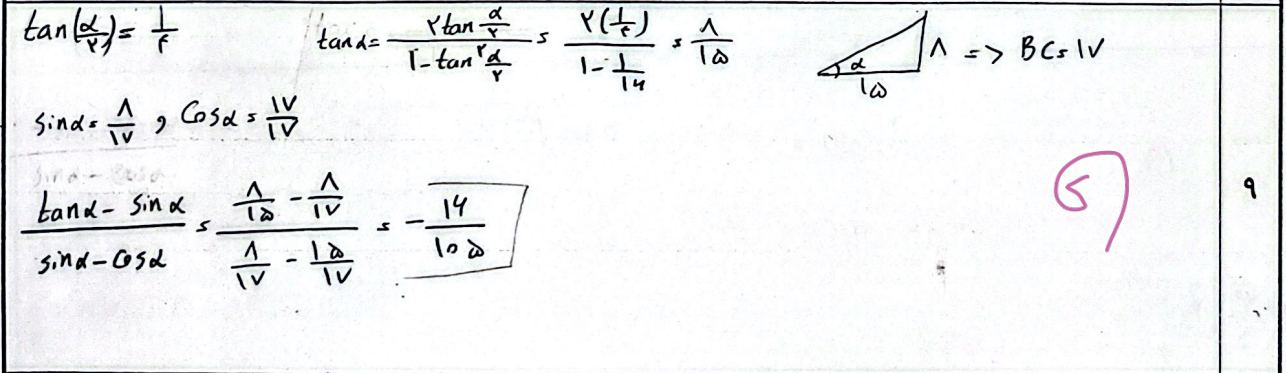 tan(α/۲) = ۱/۴   tanα = (۲tan α/۲)/(۱-tan²α/۲) = (۲(۱/۴))/(۱-۱/۱۶) = ۸/۱۵   α ۸ ۱۵ => BC = ۱۷
sinα = ۸/۱۷ , Cosα = ۱۷/۱۷
sinα - cosα
(tanα - sinα)/(sinα - cosα) = (۸/۱۵ - ۸/۱۷)/(۸/۱۷ - ۱۵/۱۷) = -۱۶/۱۰۵
۹